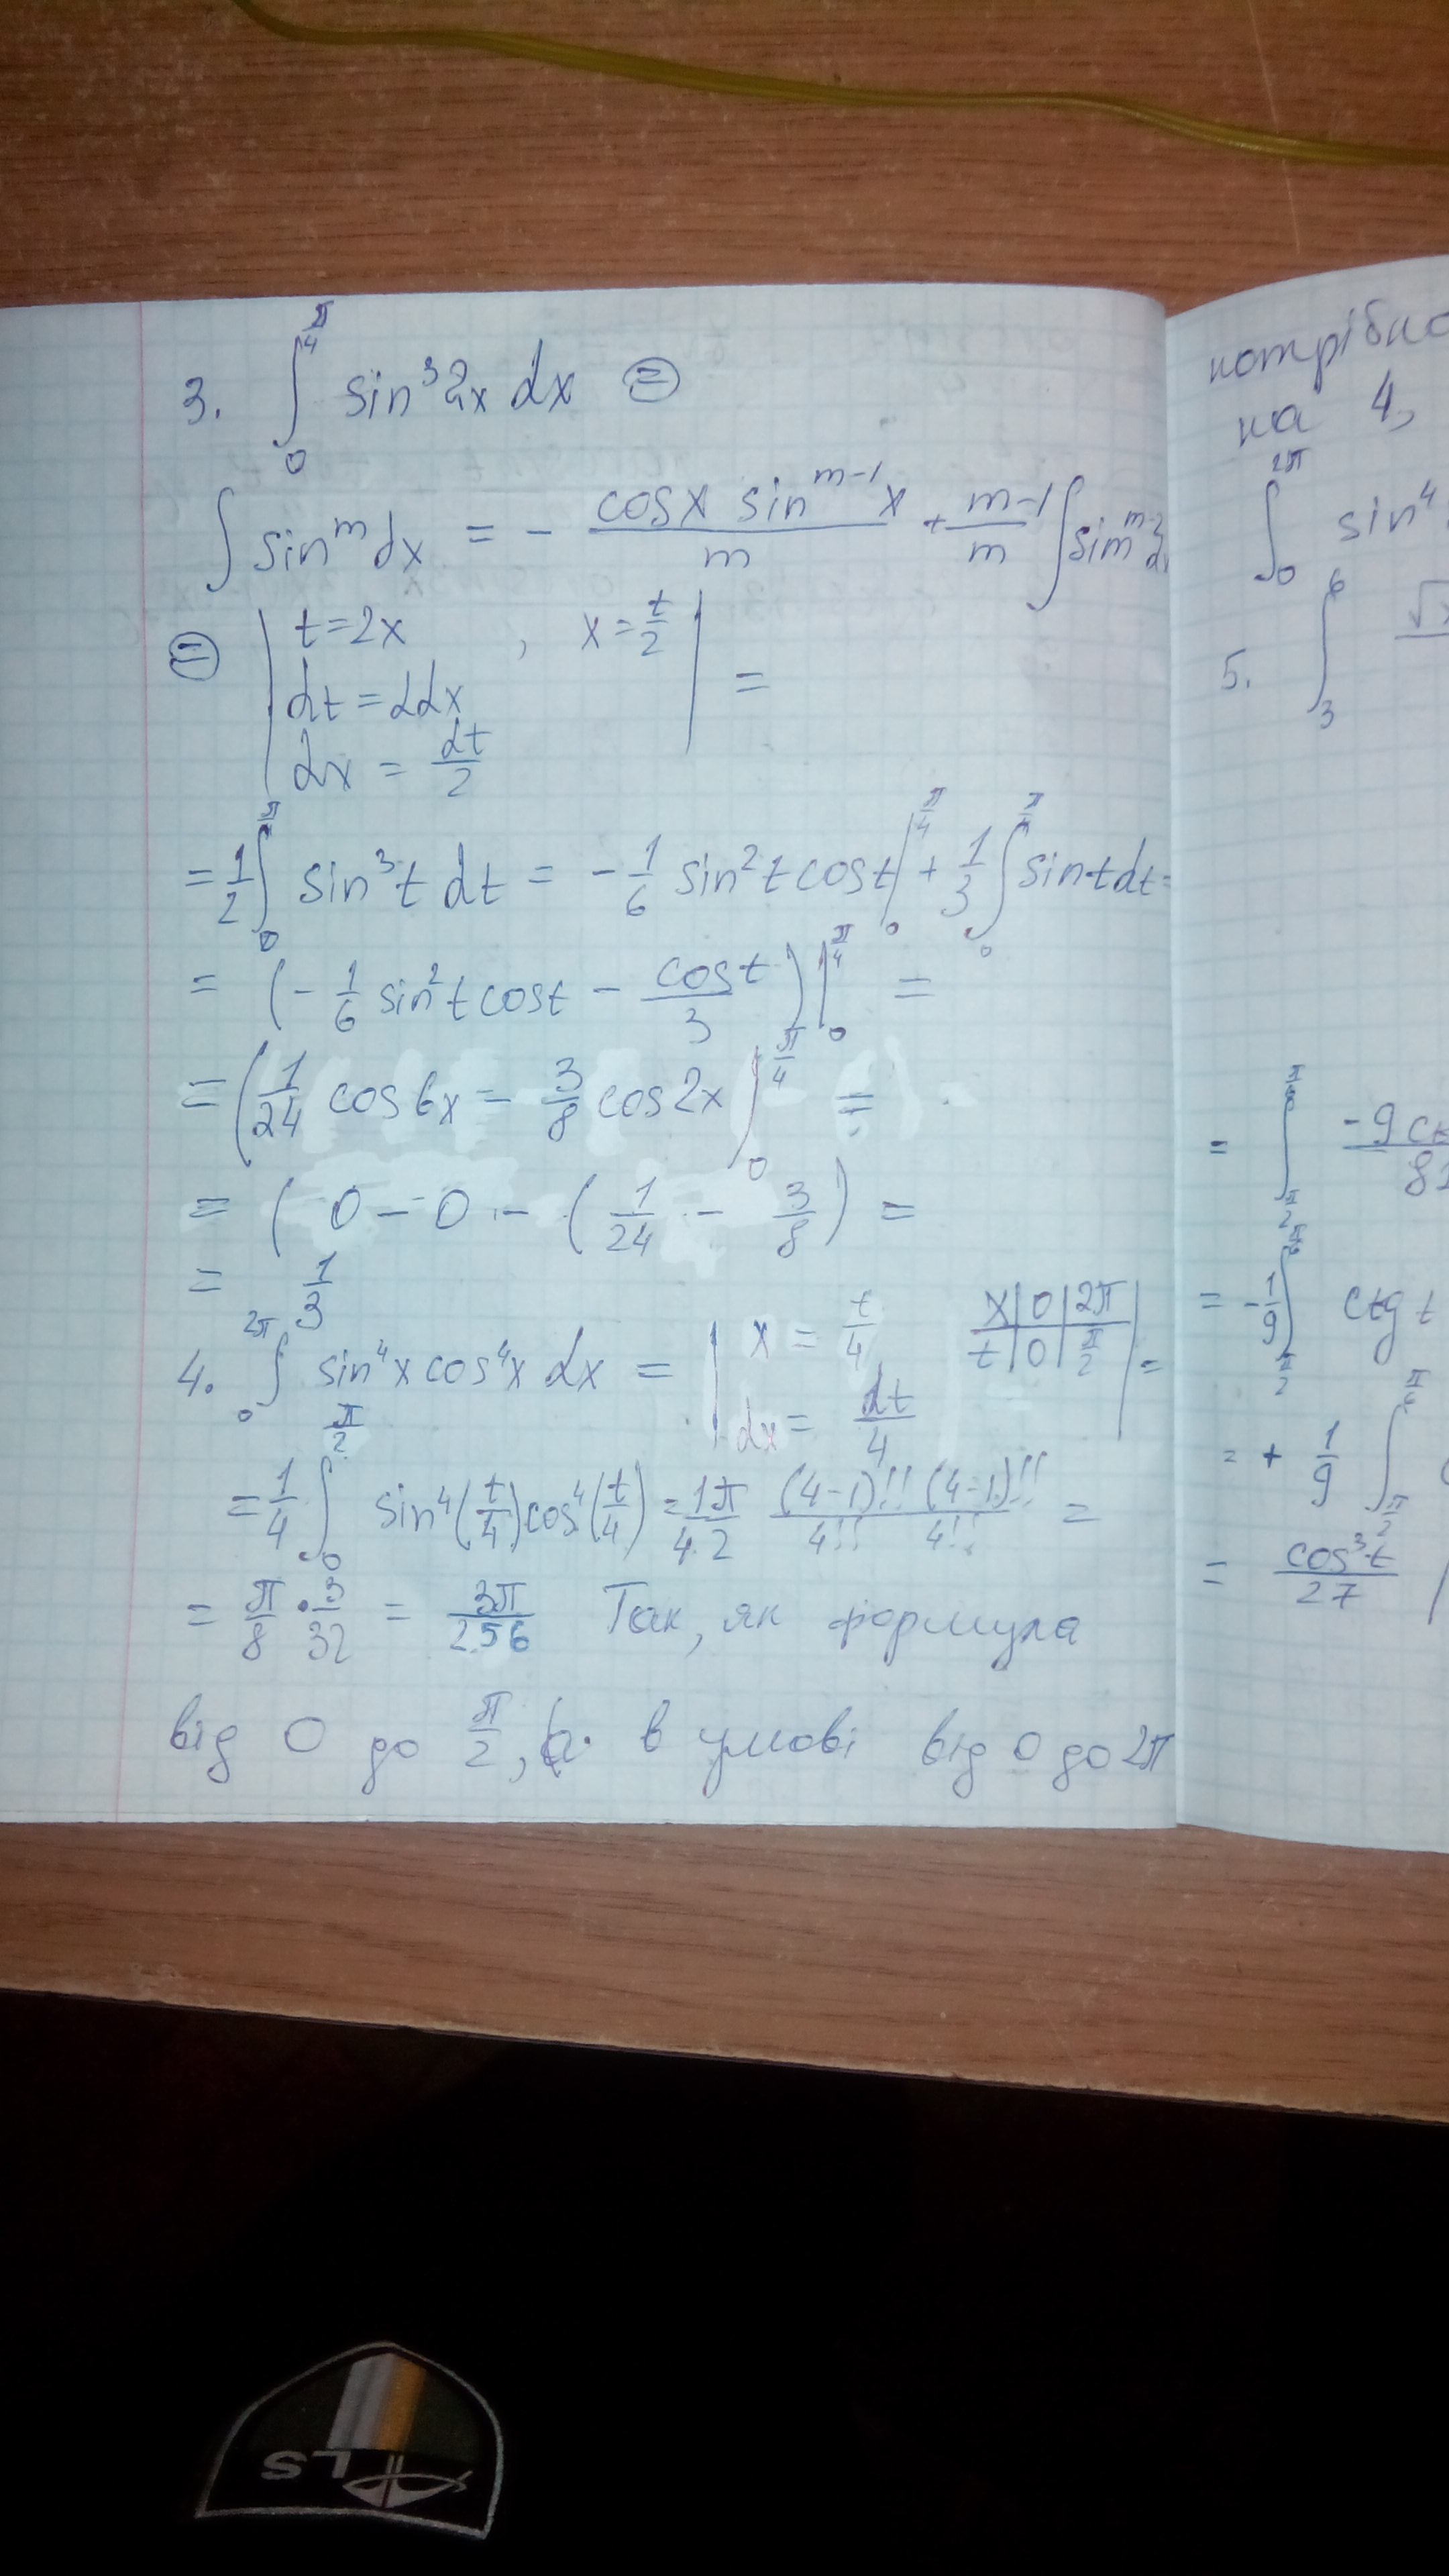 3. ∫₀^{π/4} sin³2x dx ⊜
∫ sin^m dx = - (cosx sin^{m-1}x)/m + (m-1)/m ∫ sin^{m-2} dx
⊜ | t=2x , x=t/2 | =
dt=2dx
dx = dt/2
= 1/2 ∫₀ sin³t dt = - 1/6 sin²t cost |₀^{π/4} + 1/3 ∫₀ sint dt =
= (- 1/6 sin²t cost - cost/3) |₀^{π/4} =
= (1/24 cos6x - 3/8 cos2x |₀^{π/4} =
= ( 0 - 0 - (1/24 - 3/8) =
= 1/3
4. ∫₀^{2π} sin⁴x cos⁴x dx = | x = t/4, dx = dt/4 | x|0|2π
t|0|π/2 | =
= 1/4 ∫₀^{π/2} sin⁴(t/4) cos⁴(t/4) = 1π/4·2 (4-1)!! (4-1)!! / 4!! 4!! =
= π/8 · 3/32 = 3π/256 Так, як формула
від 0 до π/2, а в умові від 0 до 2π
потрібно
на 4,
∫₀^{2π} sin⁴
5. ∫₃^6 √
= ∫ -9
= -1/9 ∫ ctg t
= + 1/9 ∫
= cos³t/27 |
LS